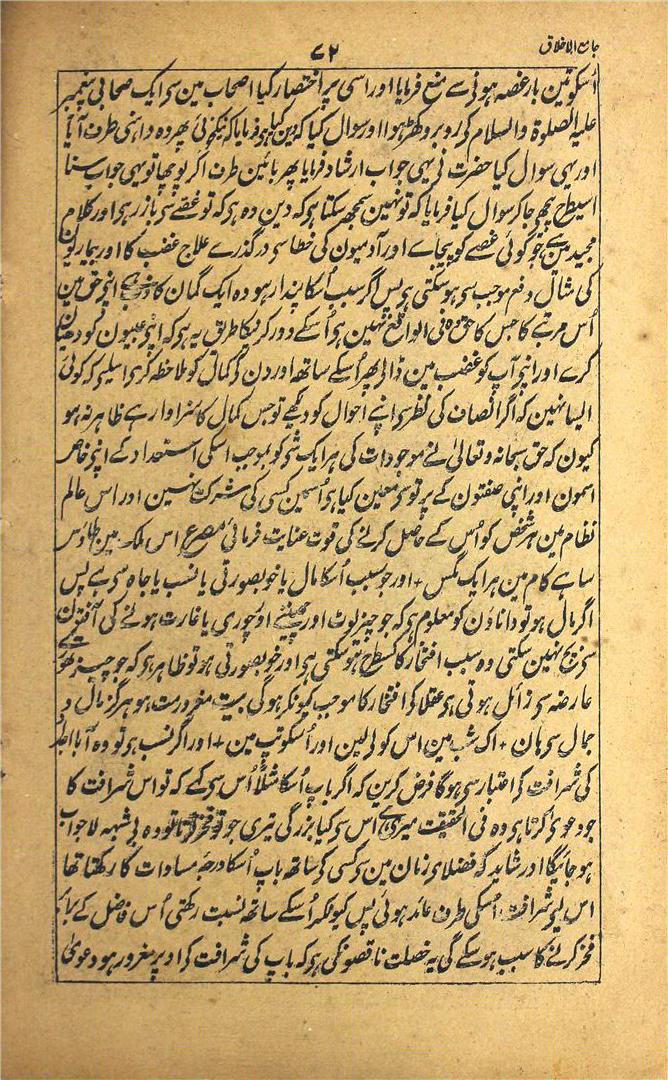 جامع الاخلاق
۷۲
اُسکو تین بار غصہ ہونی سے منع فرمایا اور اسی پر اختصار کیا اصحاب مین سی ایک صحابی پیغمبر
علیہ الصلوۃ والسلام کی روبرو کھڑ ہوا اور سوال کیا کہ دین کیا ہی فرمایا کہ نیکخوئی پھر وہ داہنی طرف آیا
اور یہی سوال کیا حضرت نی یہی جواب ارشاد فرمایا پھر بائین طرف آکر پوچھا تو یہی جواب سنا
اسیطرح پیچھی جا کر سوال کیا فرمایا کہ تو نہین سمجھ سکتا ہی کہ دین وہ ہی کہ تو غصّے سی باز رہی اور کلام
مجید مین ہی جو کوئی غصے کو پیجاے اور آدمیون کی خطا سی درگذرے علاج غضب کا اور بیماریون
کی مثال دفع موجب سی ہو سکتی ہی پس اگر سبب اُسکا پندار ہو وہ ایک گمان کاذب ہی اپنی حق مین
اُس مرتبے کا جس کا حق وہ فی الواقع نہین ہی اُسکے دور کرنیکا طریق یہ ہی کہ اپنی عیبون کو دھیان
کرے اور اپنی آپ کو غضب مین ڈالی پھر اُسکے ساتھ اور دن کی کمال کو ملاحظہ کری اسلیی کہ کوئی
ایسا نہین کہ اگر انصاف کی نظر سی اپنے احوال کو دیکھے تو جس کمال کا سزاوار ہے ظاہر نہ ہو
کیون کہ حق سبحانہ و تعالیٰ نے موجودات کی ہر ایک شی کو بموجب اسکی استعداد کے اپنی خاص
اسمون اور اپنی صفتون کے پرتو سی معین کیا ہی اُسمین کسی کی شرکت نہین اور اس عالم
نظام مین ہر شخص کو اُس کے حاصل کرنے کی قوت عنایت فرمائی مصرع اس ملک مین طاؤس
سا ہے کام مین ہر ایک مگس + اور جو سبب اُسکا مال یا خوبصورتی یا نسب یا جاہ سی ہے پس
اگر مال ہو تو داناؤن کو معلوم ہی کہ جو چیز لوٹ اور چھیننے اور چوری یا غارت ہونے کی آفتون
سی بچ نہین سکتی وہ سبب افتخار کا کسطرح ہو سکتی ہی اور خوبصورتی ہو تو ظاہر ہی کہ جو چیز تھوڑے
عارضہ سی زائل ہوتی ہی عقلا کی افتخار کا موجب کیونکر ہوگی بیت مغرور مت ہو ہرگز مال و
جمال سی ہان + اک شب مین اس کو لی لین اور اُسکو تپ مین + اور اگر نسب ہو تو وہ آبا اجداد
کی شرافت کی اعتبار سی ہوگا فرض کرین کہ اگر باپ اُسکا مثلاً اُس سی کہے کہ تو اس شرافت کا
جو دعویٰ کرتا ہی وہ فی الحقیقت میری ہی اس سی کیا بزرگی تیری جو تو فخر کرتا تو وہ بی شبہہ لاجواب
ہو جائیگا اور شاید کہ فضلای زمان مین سی کسی کی ساتھ باپ اُسکا درجہ مساوات کا رکھتا تھا
اس لیی شرافت اُسکی طرف عائد ہوئی پس کیونکر اُسکے ساتھ نسبت رکھتی اُس فاضل کے برابر
فخر کرنے کا سبب ہو سکے گی یہ خصلت ناقصونکی ہی کہ باپ کی شرافت کی اوپر مغرور ہو دعویٰ